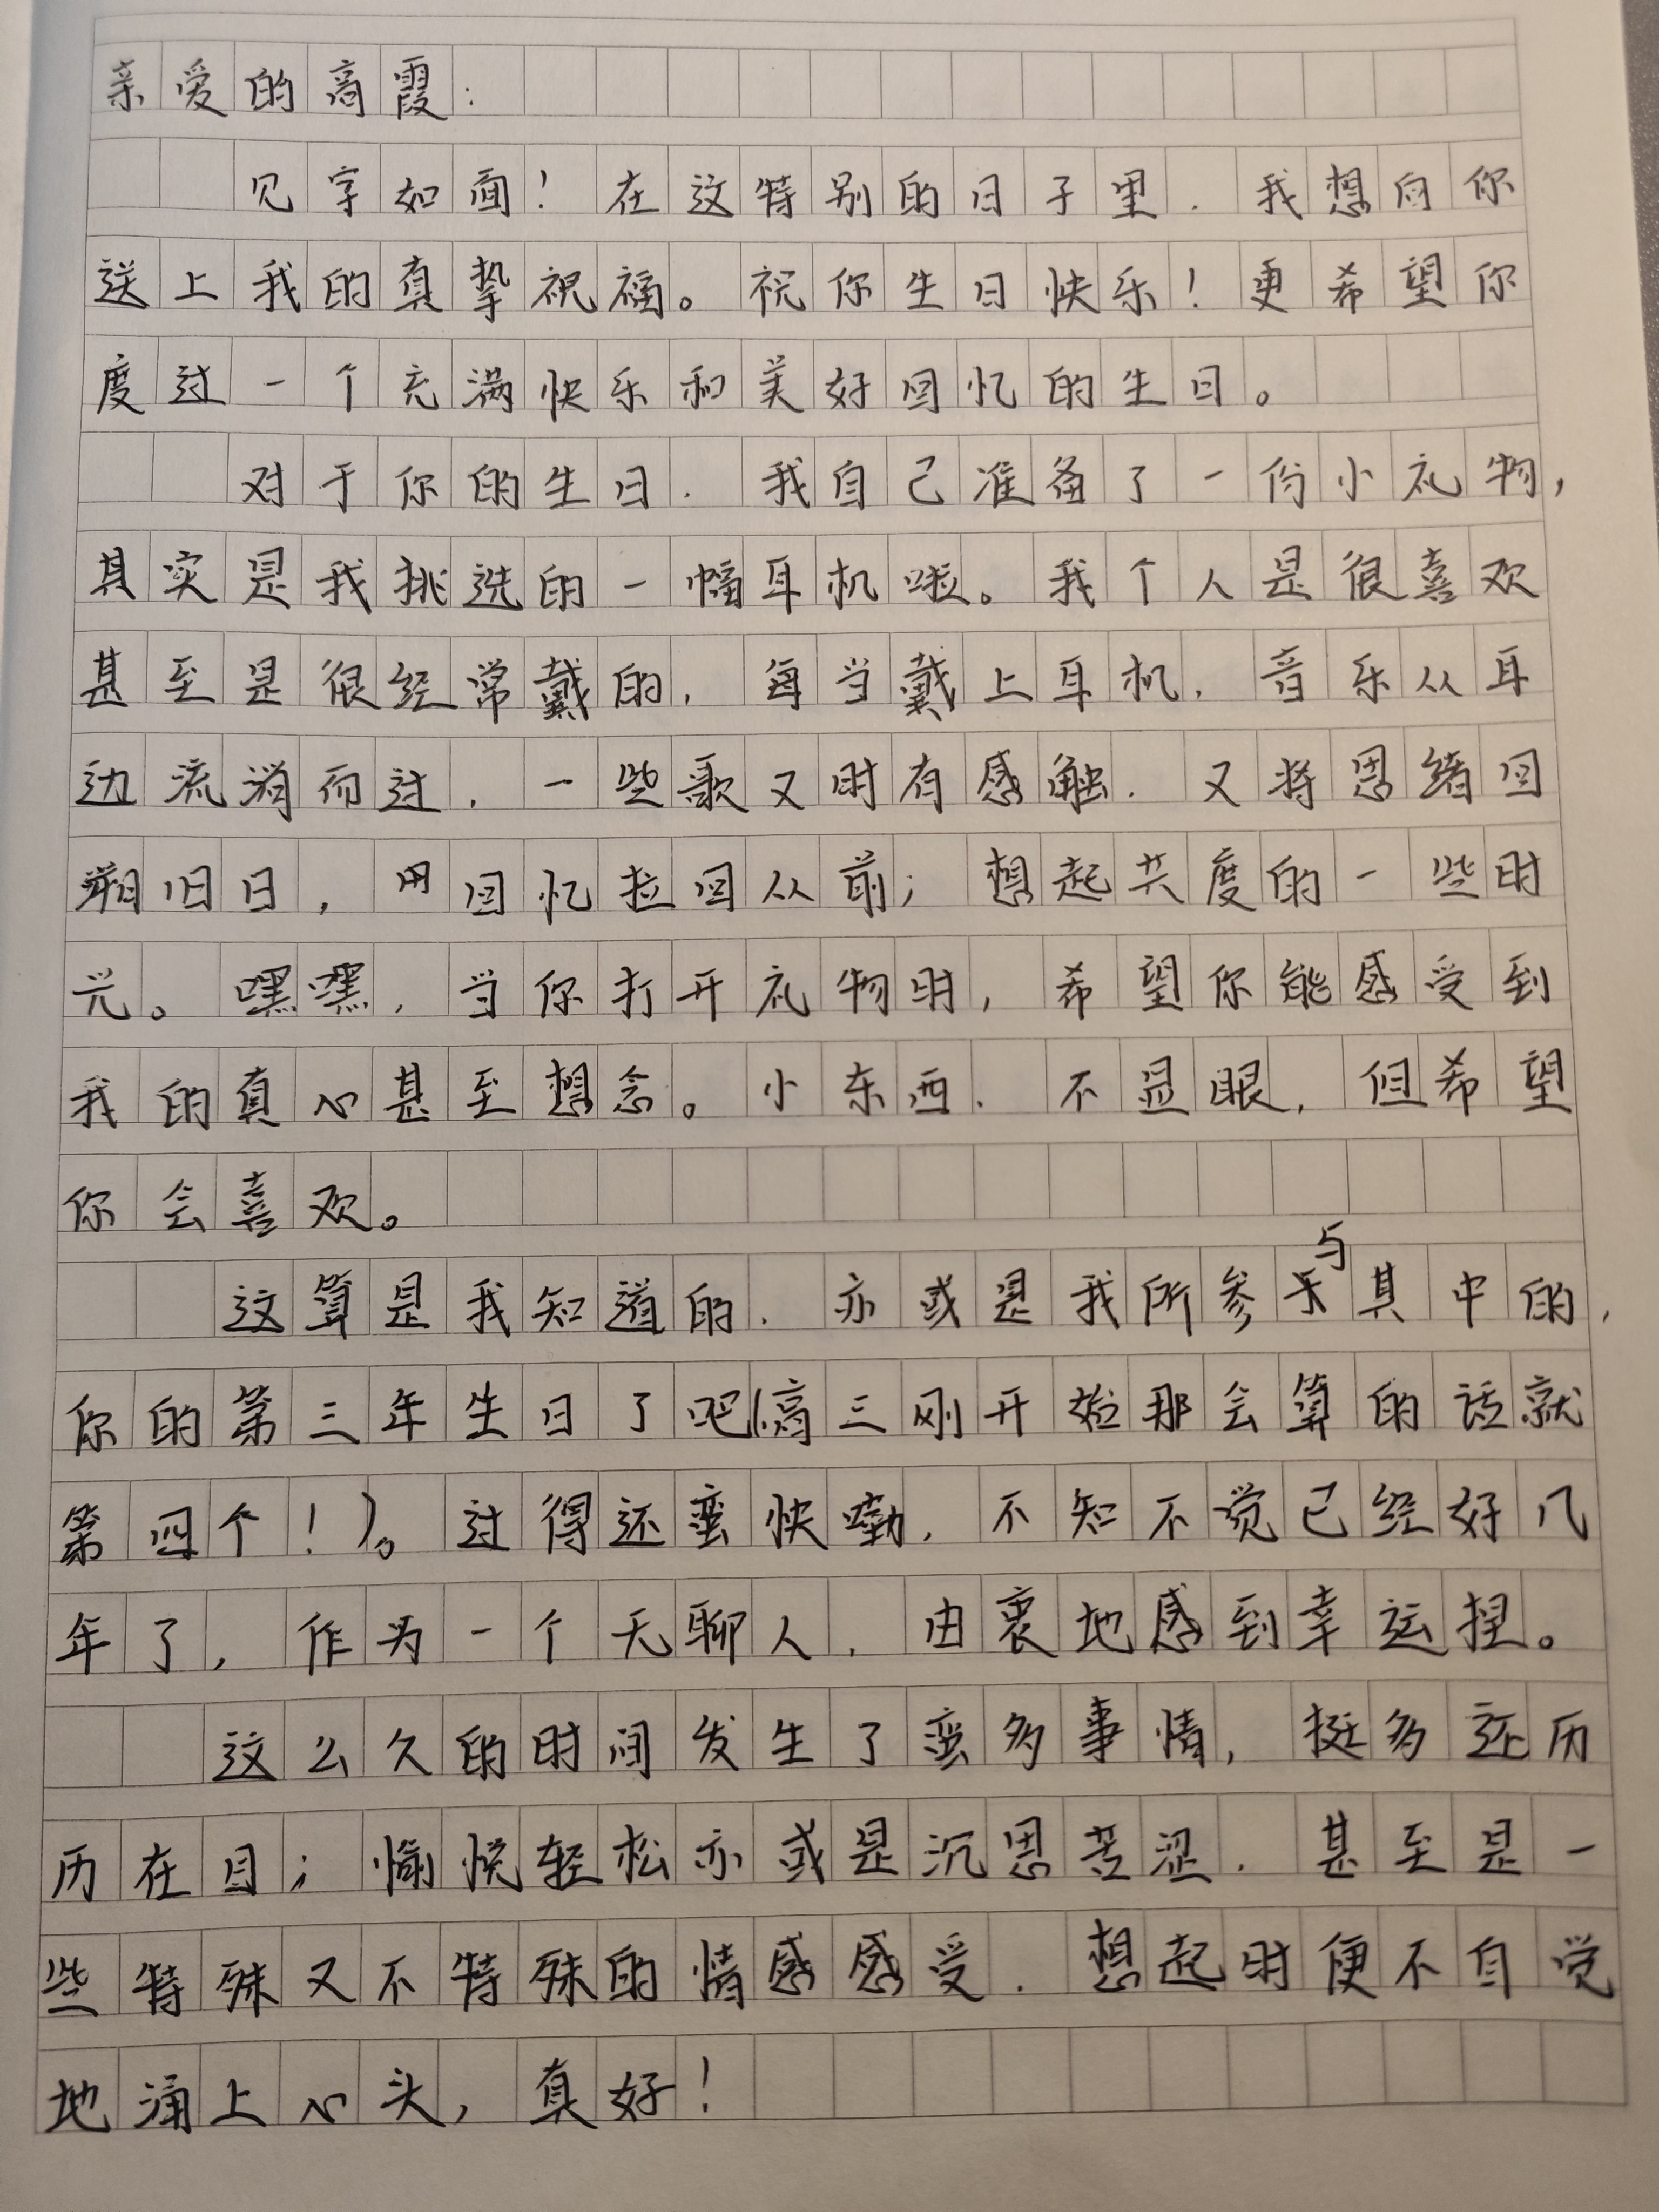 亲爱的高霞：
见字如面！在这特别的日子里，我想向你
送上我的真挚祝福。祝你生日快乐！更希望你
度过一个充满快乐和美好回忆的生日。
对于你的生日，我自己准备了一份小礼物，
其实是我挑选的一幅耳机啦。我个人是很喜欢
甚至是很经常戴的，每当戴上耳机，音乐从耳
边流淌而过，一些歌又时有感触，又将思绪回
朔旧日，用回忆拉回从前；想起共度的一些时
光。嘿嘿，当你打开礼物时，希望你能感受到
我的真心甚至想念。小东西，不显眼，但希望
你会喜欢。
这算是我知道的，亦或是我所参与其中的，
你的第三年生日了吧（高三刚开始那会算的话就
第四个！）。过得还蛮快嘞，不知不觉已经好几
年了，作为一个无聊人，由衷地感到幸运捏。
这么久的时间发生了蛮多事情，挺多还历
历在目；愉悦轻松亦或是沉思苦涩，甚至是一
些特殊又不特殊的情感感受，想起时便不自觉
地涌上心头，真好！